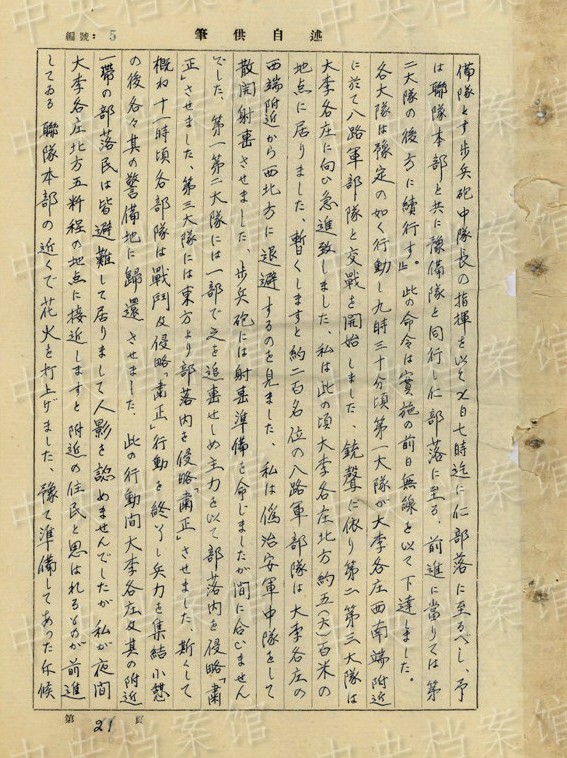 筆供自述
編號：5
備隊とす歩兵砲中隊長の指揮を以てX日七時迄に仁部落に至るべし、予
は聯隊本部と共に豫備隊と同行し仁部落に至る、前進に當りては第
二大隊の後方に續行す』。此の命令は實施の前日無線を以て下達しました。
各大隊は豫定の如く行動し九時三十分頃第一大隊が大李各庄西南端附近
に於て八路軍部隊と交戰を開始しました、銃聲に依り第二第三大隊は
大李各庄に向ひ急進致しました、私は此の頃大李各庄北方約五(六)百米の
地点に居りました、暫くしますと約二百名位の八路軍部隊は大李各庄の
西端附近から西北方に退避するのを見ました、私は僞治安軍中隊をして
散開射擊させました、歩兵砲には射擊準備を命じましたが間に合いません
でした、第一第二大隊には一部で之を追擊せしめ主力を以て部落内を侵略「粛
正」させました、第三大隊には東方より部落内を侵略「粛正」させました、斯くして
概ね十一時頃各部隊は戰鬥及侵略「粛正」行動を終了し兵力を集結小憩
の後各々其の警備地に歸還させました、此の行動間大李各庄及其の附近
一帶の部落民は皆避難して居りまして人影を認めませんでしたが私が夜間
大李各庄北方五粁程の地点に接近しますと附近の住民と思はれるものが前進
してゐる聯隊本部の近くで花火を打上げました、豫て準備してあった斥候
第21頁
中央档案馆